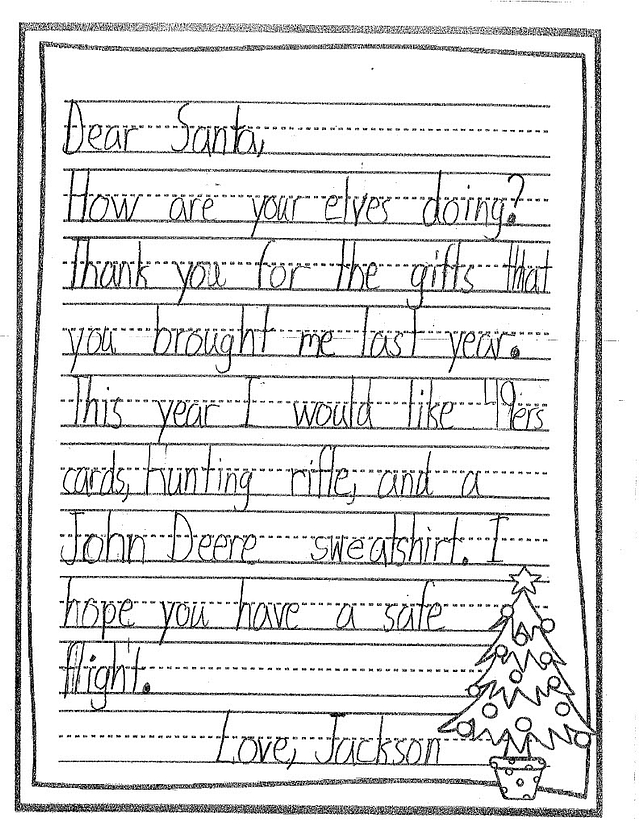 Dear Santa,
How are your elves doing?
Thank you for the gifts that
you brought me last year.
This year I would like 49ers
cards, hunting rifle, and a
John Deere sweatshirt. I
hope you have a safe
flight.
Love, Jackson